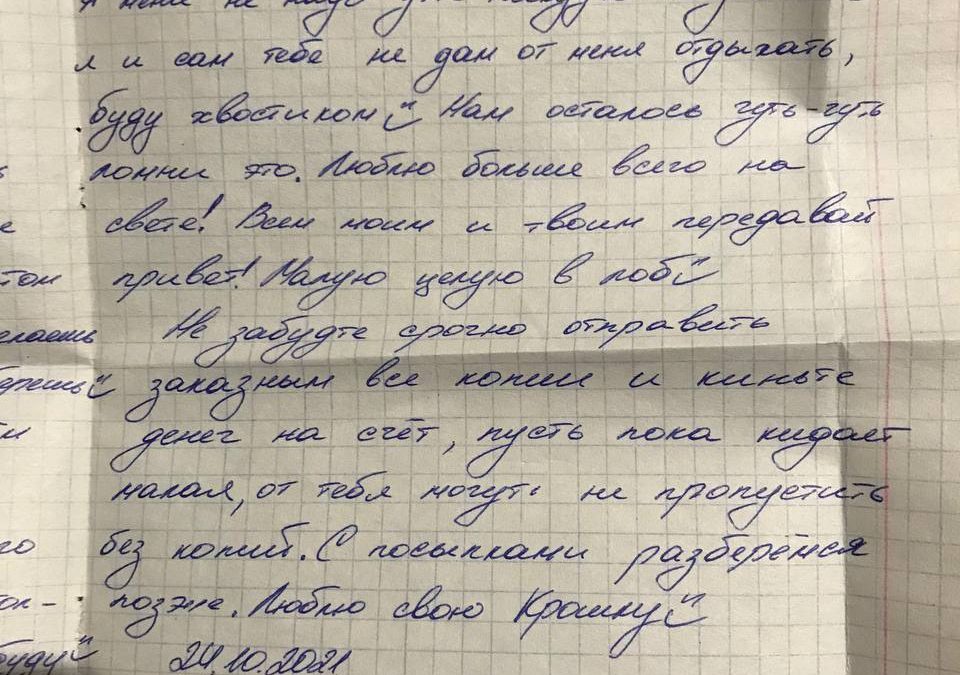 я и сам тебе не дам от меня отдыхать,
буду хвостиком Нам осталось чуть-чуть
помни это. Люблю больше всего на
свете! Всем моим и твоим передавай
том привет! Малую целую в лоб
Не забудте срочно отправить
заказным все копии и киньте
денег на счёт, пусть пока кидает
малая, от тебя могут не пропустить
го без копий. С посылками разберёмся
позже. Люблю свою Крошку
буду 24.10.2021